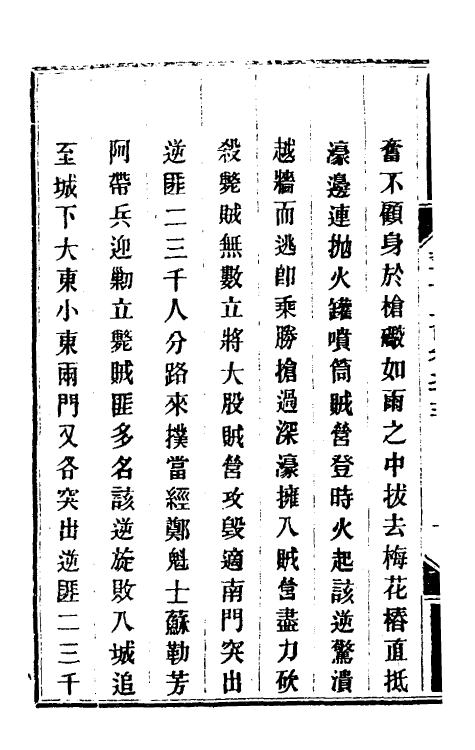 奮不顧身於槍礮如雨之中拔去梅花樁直抵
濠邊連抛火罐噴筒賊營登時火起該逆驚潰
越牆而逃卽乘勝搶過深濠擁入賊營盡力砍
殺斃賊無數立將大股賊營攻毀適南門突出
逆匪二三千人分路來撲當經鄭魁士蘇勒芳
阿帶兵迎勦立斃賊匪多名該逆旋敗入城追
至城下大東小東兩門又各突出逆匪二三千